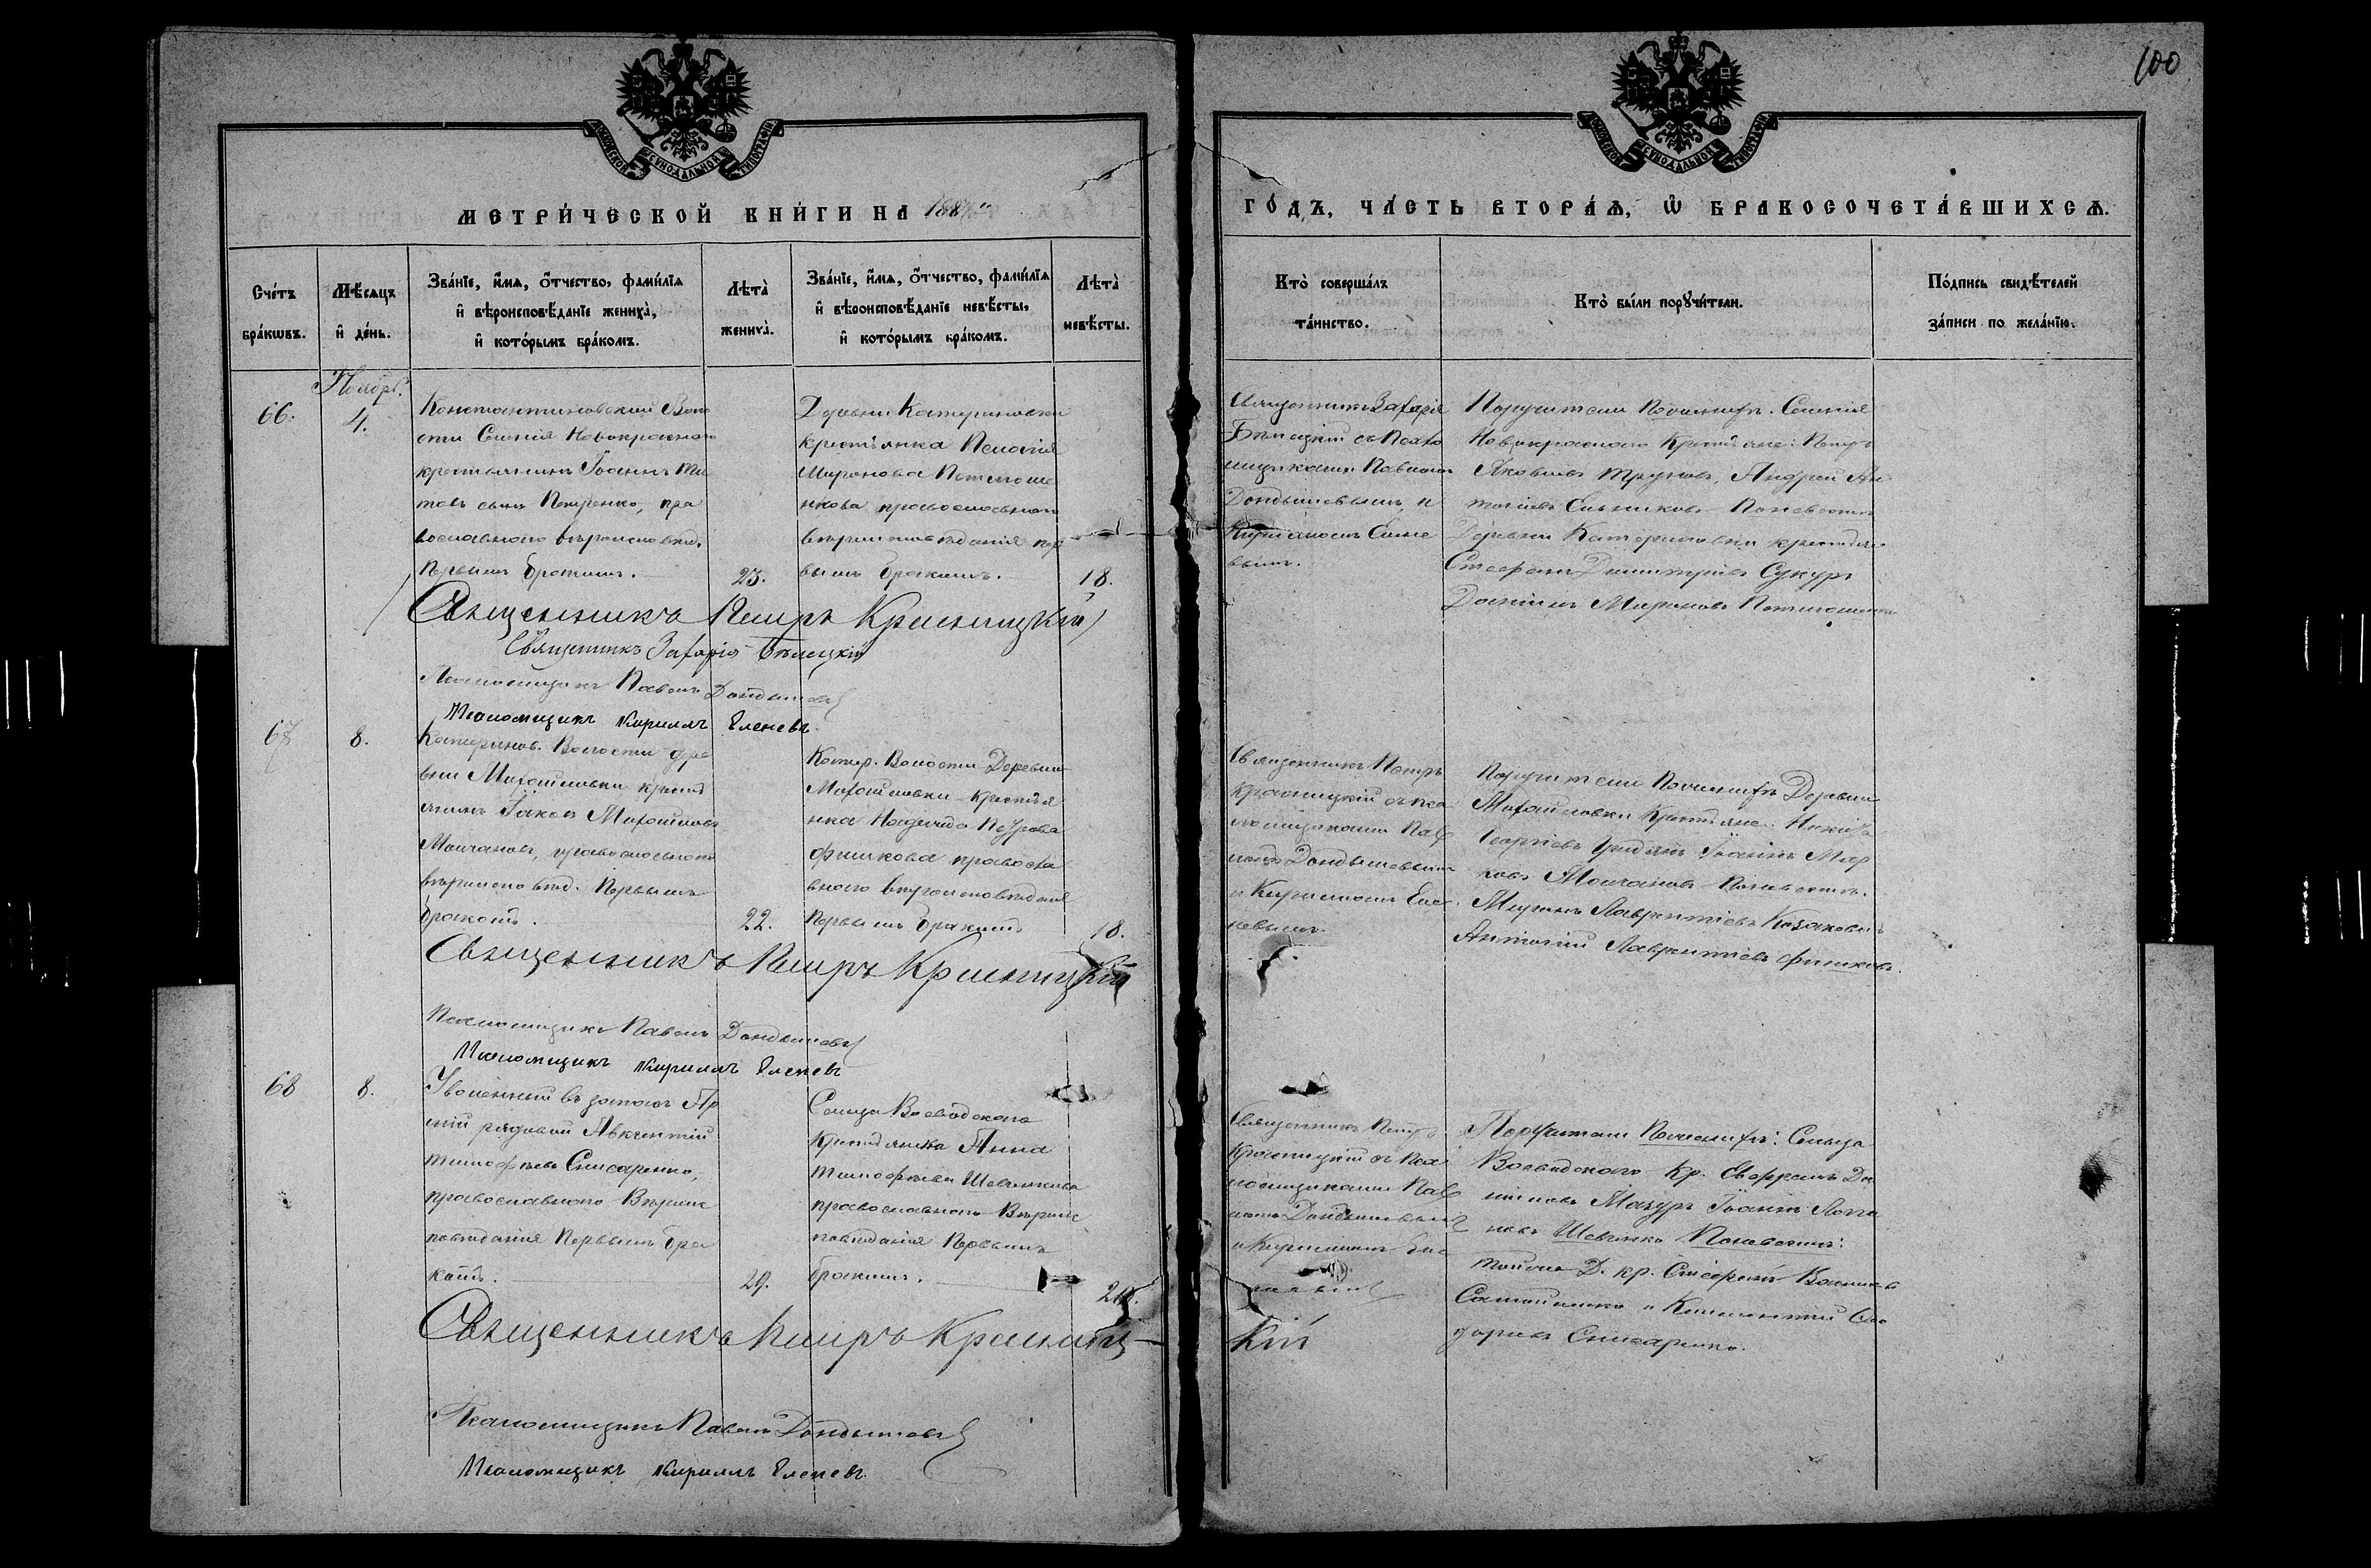 100
МОСКОВСКОЙ СѴНОДАЛЬНОЙ ТИПОГРАФІИ
МОСКОВСКОЙ СѴНОДАЛЬНОЙ ТИПОГРАФІИ
МЕТРИ́ЧЕСКОЙ КНИ́ГИ НА 188
ГО́ДЪ, ЧА́СТЬ ВТОРА́Ѧ, Ѽ БРАКОСОЧЕТА́ВШИХСѦ.
Сче́тъ бра́кѡвъ.
Мѣ́сѧцъ и҆ де́нь.
Зва́нїе, и҆́мѧ, ѻ҆́тчество, фами́лїѧ и҆ вѣроисповѣ́данїе жениха̀, и҆ кото́рымъ бра́комъ.
Лѣта̀ жениха̀.
Зва́нїе, и҆́мѧ, ѻ҆́тчество, фами́лїѧ и҆ вѣроисповѣ́данїе невѣ́сты, и҆ кото́рымъ бра́комъ.
Лѣта̀ невѣ́сты.
Кто̀ соверша́лъ та́инство.
Кто̀ бы́ли порꙋчи́тели.
По́дпись свидѣ́телей за́писи по жела́нїю.
Ноябрь
66.
4.
Константиновской Воло
сти Селенія Новокраснаго
крестьянинъ Іоаннъ Ти
товъ сынъ Петренко, пра
вославнаго вѣроисповѣд.
первымъ бракомъ.
23.
Деревни Катериновки
крестьянка Пелагія
Миронова
православнаго
вѣроисповѣданія пер
вымъ бракомъ.
18.
Священникъ Захарія
Бѣлецкій съ Псало
мщиками Павломъ
Дондышевымъ и
Кирилломъ Елене
вымъ.
Поручители По женихѣ: Селенія
Новокраснаго Крестьяне: Петръ
Яковлевъ Труновъ, Андрей Ан
По невѣстѣ
Деревни Катериновки крестьяне
Стефанъ Димитріевъ Сукуръ
Даніилъ Мироновъ
Священникъ Петръ Красницкій
Священникъ Захарія Бѣлецкій
Псаломщикъ Павелъ Дондышевъ
Псаломщикъ Кириллъ Еленевъ
67
8.
Катеринов. Волости дере
вни Михайловки кресть
янинъ Іаковъ Михайловъ
Молчановъ, православнаго
вѣроисповѣд. Первымъ
бракомъ.
22.
Катер. Волости Деревни
Михайловки крестья
нка Надежда Петрова
Фишкова правосла
внаго вѣроисповѣданія
Первымъ бракомъ
18.
Священникъ Петръ
Красницкій съ пса
ломщиками Пав
ломъ Дондышевымъ
и Кирилломъ Еле
невымъ.
Поручители По женихѣ Деревни
Михайловки Крестьяне: Никита
Георгіевъ Іоаннъ Мар
ковъ Молчановъ По невѣстѣ.
Лаврентіевъ Казаковъ
Антоній Лаврентіевъ Фишковъ.
Священникъ Петръ Красницкій
Псаломщикъ Павелъ Дондышевъ
Псаломщикъ Кириллъ Еленевъ
68
8.
Уволенный въ запасъ Ар
міи рядовой Авксентій
Тимофѣевъ Слисаренко,
православнаго Вѣроис
повѣданія Первымъ бра
комъ.
29.
Сельца Воеводскаго
Крестьянка Анна
Тимофѣева Шевченкова
православнаго Вѣроис
повѣданія Первымъ
бракомъ.
Священникъ Петръ
Красницкій съ Пса
ломщиками Пав
ломъ Дондышевымъ
и Кирилломъ Еле
невымъ
Поручители По женихѣ: Сельца
Воеводскаго Кр. Ефремъ Да
ніиловъ Мазуръ Іоаннъ
Шевченко По невѣстѣ:
тойже Д. кр. Стефанъ
Самойленко и Климентій Си
доровъ Слисаренко.
Священникъ Петръ Красницкій
Псаломщикъ Павелъ Дондышевъ
Псаломщикъ Кириллъ Еленевъ.